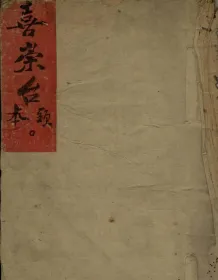 喜崇台
本頭。